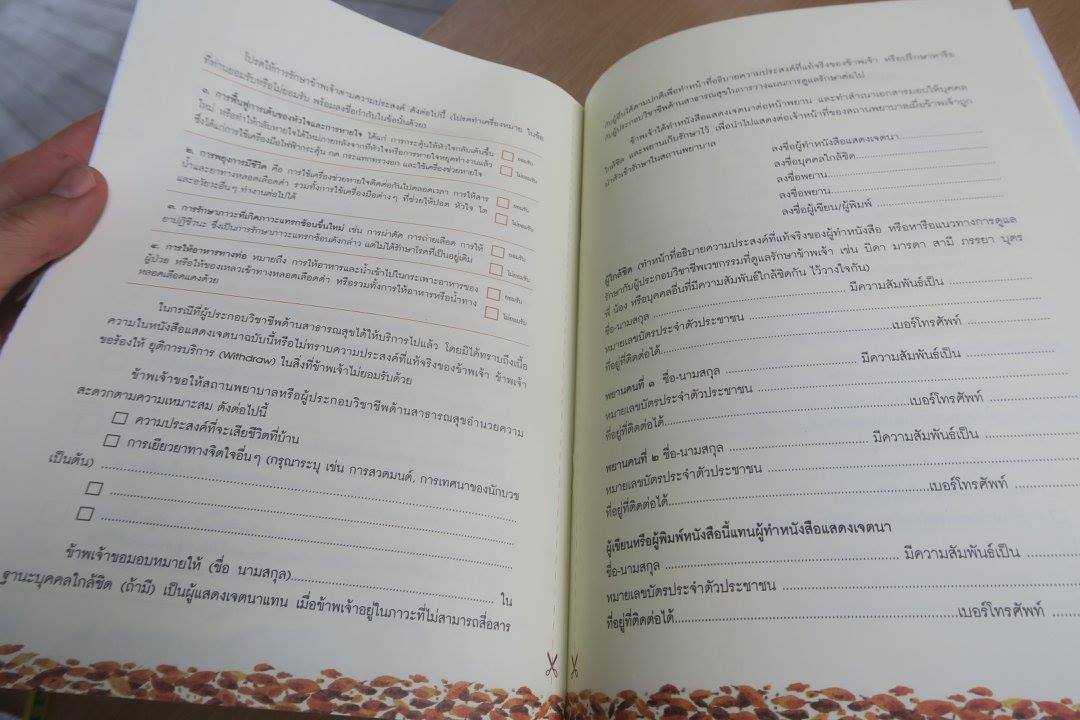 โปรดให้การรักษาข้าพเจ้าตามความประสงค์ ดังต่อไปนี้ (โปรดทำเครื่องหมาย ในข้อ
ที่ท่านยอมรับหรือไม่ยอมรับ พร้อมลงชื่อกำกับในข้อนั้นด้วย)
๑. การฟื้นฟูการเต้นของหัวใจและการหายใจ ได้แก่ การกระตุ้นให้หัวใจกลับเต้นขึ้น
ใหม่ หรือทำให้กลับหายใจได้ใหม่ภายหลังจากที่หัวใจหรือการหายใจหยุดทำงานแล้ว
ซึ่งได้แก่การใช้เครื่องมือไฟฟ้ากระตุ้น กด กระแทกทรวงอก และใช้เครื่องช่วยหายใจ
ยอมรับ
ไม่ยอมรับ
๒. การพยุงการมีชีวิต คือ การใช้เครื่องช่วยหายใจติดต่อกันไปตลอดเวลา การให้สาร
น้ำและยาทางหลอดเลือดดำ รวมทั้งการใช้เครื่องมือต่างๆ ที่ช่วยให้ปอด หัวใจ ไต
และอวัยวะอื่นๆ ทำงานต่อไปได้
ยอมรับ
ไม่ยอมรับ
๓. การรักษาภาวะที่เกิดภาวะแทรกซ้อนขึ้นใหม่ เช่น การผ่าตัด การถ่ายเลือด การให้
ยาปฏิชีวนะ ซึ่งเป็นการรักษาภาวะแทรกซ้อนดังกล่าว แต่ไม่ได้รักษาโรคที่เป็นอยู่เดิม
ยอมรับ
ไม่ยอมรับ
๔. การให้อาหารทางท่อ หมายถึง การให้อาหารและน้ำเข้าไปในกระเพาะอาหารของ
ผู้ป่วย หรือให้ของเหลวเข้าทางหลอดเลือดดำ หรือรวมทั้งการให้อาหารหรือน้ำทาง
หลอดเลือดแดงด้วย
ยอมรับ
ไม่ยอมรับ
ในกรณีที่ผู้ประกอบวิชาชีพด้านสาธารณสุขได้ให้บริการไปแล้ว โดยมิได้ทราบถึงเนื้อ
ความในหนังสือแสดงเจตนาฉบับนี้หรือไม่ทราบความประสงค์ที่แท้จริงของข้าพเจ้า ข้าพเจ้า
ขอร้องให้ ยุติการบริการ (Withdraw) ในสิ่งที่ข้าพเจ้าไม่ยอมรับด้วย
ข้าพเจ้าขอให้สถานพยาบาลหรือผู้ประกอบวิชาชีพด้านสาธารณสุขอำนวยความ
สะดวกตามความเหมาะสม ดังต่อไปนี้
ความประสงค์ที่จะเสียชีวิตที่บ้าน
การเยียวยาทางจิตใจอื่นๆ (กรุณาระบุ เช่น การสวดมนต์, การเทศนาของนักบวช
เป็นต้น) ........................................
........................................
........................................
ข้าพเจ้าขอมอบหมายให้ (ชื่อ นามสกุล)........................................ ใน
ฐานะบุคคลใกล้ชิด (ถ้ามี) เป็นผู้แสดงเจตนาแทน เมื่อข้าพเจ้าอยู่ในภาวะที่ไม่สามารถสื่อสาร
กับผู้อื่นได้ตามปกติเพื่อทำหน้าที่อธิบายความประสงค์ที่แท้จริงของข้าพเจ้า หรือปรึกษาหารือ
กับผู้ประกอบวิชาชีพด้านสาธารณสุขในการวางแผนการดูแลรักษาต่อไป
ข้าพเจ้าได้ทำหนังสือแสดงเจตนาต่อหน้าพยาน และทำสำเนาเอกสารมอบให้บุคคล
ใกล้ชิด และพยานเก็บรักษาไว้ เพื่อนำไปแสดงต่อเจ้าหน้าที่ของสถานพยาบาลเมื่อข้าพเจ้าถูก
นำตัวเข้ารักษาในสถานพยาบาล
ลงชื่อผู้ทำหนังสือแสดงเจตนา....................
ลงชื่อบุคคลใกล้ชิด....................
ลงชื่อพยาน....................
ลงชื่อพยาน....................
ลงชื่อผู้เขียน/ผู้พิมพ์ ....................
ผู้ใกล้ชิด (ทำหน้าที่อธิบายความประสงค์ที่แท้จริงของผู้ทำหนังสือ หรือหารือแนวทางการดูแล
รักษากับผู้ประกอบวิชาชีพเวชกรรมที่ดูแลรักษาข้าพเจ้า เช่น บิดา มารดา สามี ภรรยา บุตร
พี่ น้อง หรือบุคคลอื่นที่มีความสัมพันธ์ใกล้ชิดกัน ไว้วางใจกัน)
ชื่อ-นามสกุล ........................................ มีความสัมพันธ์เป็น ....................
หมายเลขบัตรประจำตัวประชาชน ........................................
ที่อยู่ที่ติดต่อได้........................................เบอร์โทรศัพท์ ....................
พยานคนที่ ๑ ชื่อ-นามสกุล ........................................ มีความสัมพันธ์เป็น ....................
หมายเลขบัตรประจำตัวประชาชน ........................................
ที่อยู่ที่ติดต่อได้........................................เบอร์โทรศัพท์ ....................
พยานคนที่ ๒ ชื่อ-นามสกุล ........................................ มีความสัมพันธ์เป็น ....................
หมายเลขบัตรประจำตัวประชาชน ........................................
ที่อยู่ที่ติดต่อได้........................................เบอร์โทรศัพท์ ....................
ผู้เขียนหรือผู้พิมพ์หนังสือนี้แทนผู้ทำหนังสือแสดงเจตนา
ชื่อ-นามสกุล ........................................ มีความสัมพันธ์เป็น ....................
หมายเลขบัตรประจำตัวประชาชน ........................................
ที่อยู่ที่ติดต่อได้........................................เบอร์โทรศัพท์ ....................